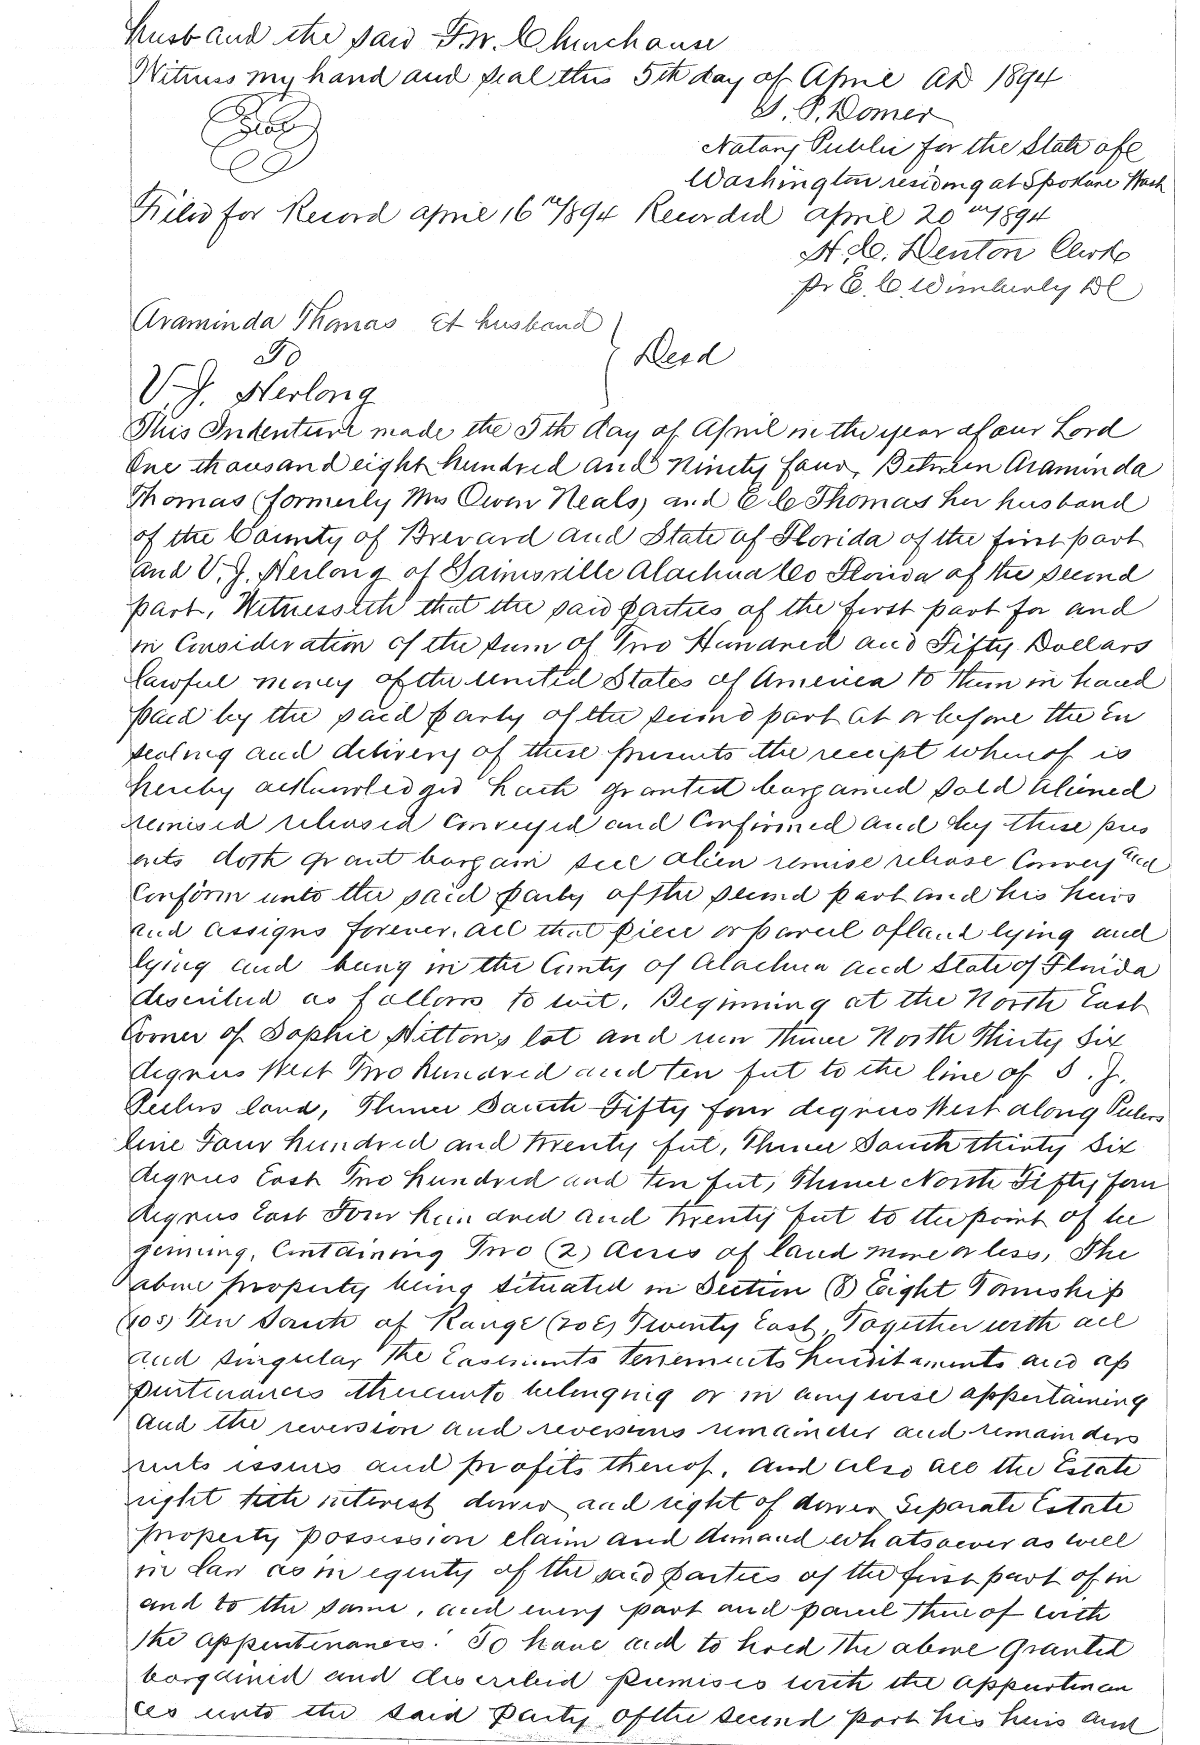 husband the said F.W. Churchouse
Witness my hand and seal this 5th day of April AD 1894
S. P. Domer
Seal
Notary Public for the State of
Washington residing at Spokane Wash
Filed for Record april 16th 1894 Recorded april 20th 1894
H. C. Denton Clerk
pr E. C. Wimberly DC
Araminda Thomas et husband
To
Deed
V. J. Herlong
This Indenture made the 5th day of April in the year of our Lord
One thousand eight hundred and Ninety four, Between Araminda
Thomas (formerly Mrs Owen Neals) and E C Thomas her husband
of the County of Brevard and State of Florida of the first part
and V. J. Herlong of Gainesville Alachua Co Florida of the second
part, Witnesseth that the said parties of the first part for and
in Consideration of the sum of Two Hundred and Fifty Dollars
lawful money of the united States of America to them in hand
paid by the said party of the second part at or before the en
sealing and delivery of these presents the receipt whereof is
hereby acknowledged hath granted bargained sold aliened
remised released conveyed and Confirmed and by these pres
ents doth grant bargain sell alien remise release Convey and
Conform unto the said party of the second part and his heirs
and assigns forever, all that piece or parcel of land lying and
lying and being in the County of Alachua and State of Florida
described as follows to wit, Beginning at the North East
Corner of Sophie Hittons lot and run thence North Thirty Six
degrees West Two hundred and ten feet to the line of S. J.
Peelers land, Thence South Fifty four degrees West along Peelers
line Four hundred and twenty feet, Thence South thirty Six
degrees East Two hundred and ten feet, Thence North Fifty four
degrees East Four hundred and twenty feet to the point of be
ginning, Containing Two (2) Acres of land more or less, The
above property being situated in Section (8) Eight Township
(10S) Ten South of Range (20E) Twenty East, Together with all
and singular the Easements tenements hereditaments and ap
purtenances thereunto belonging or in anywise appertaining
and the reversion and reversions remainder and remainders
rents issues and profits thereof, and also all the Estate
right title interest dower and right of dower Separate Estate
property possession claim and demand whatsoever as well
in law as in equity of the said parties of the first part of in
and to the same, and every part and parcel thereof with
the appurtenances. To have and to hold the above granted
bargained and described premises with the appurtenan
ces unto the said Party of the second part his heirs and